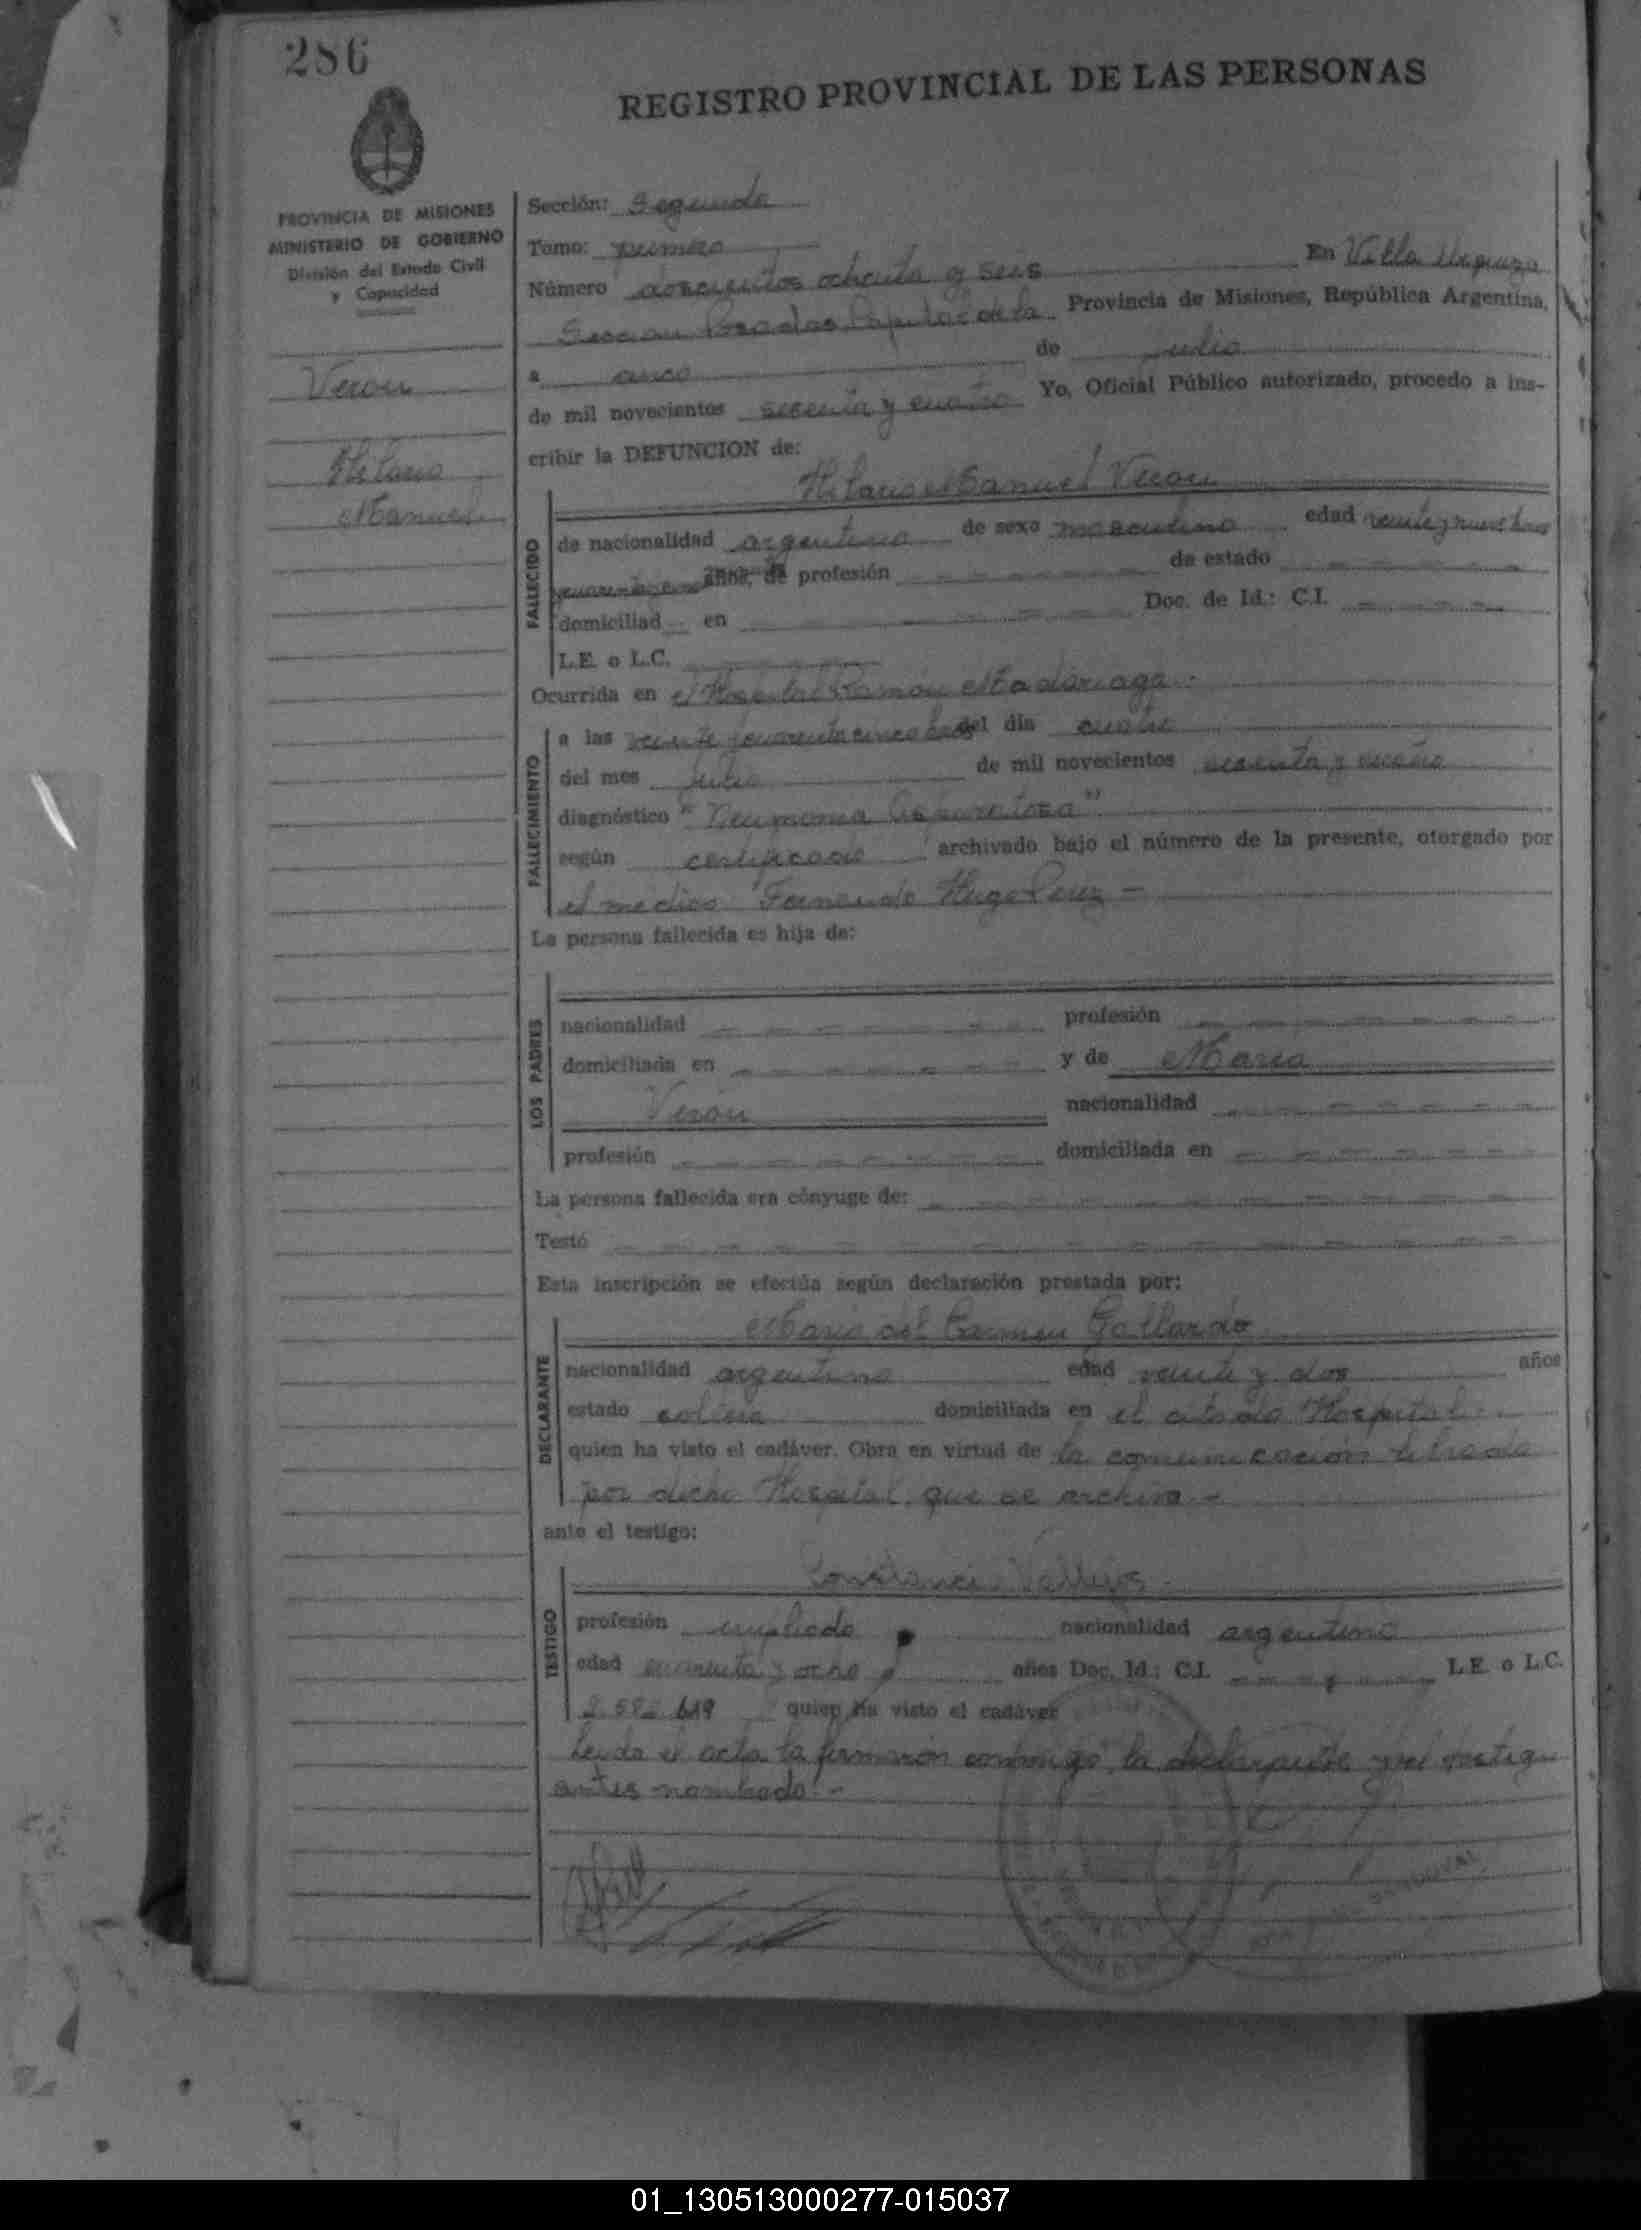 286
REGISTRO PROVINCIAL DE LAS PERSONAS
PROVINCIA DE MISIONES
MINISTERIO DE GOBIERNO
División del Estado Civil
y Capacidad
Veron
Hilario
Manuel
Sección: Segunda
Tomo: primero
Número doscientos ochenta y seis En Villa Urquiza
Seccion Posadas Capital de la Provincia de Misiones, República Argentina,
a cinco de julio
de mil novecientos sesenta y cuatro Yo, Oficial Público autorizado, procedo a ins-
cribir la DEFUNCION de:
Hilario Manuel Veron
FALLECIDO
de nacionalidad argentina de sexo masculino edad veinte y nueve
años, de profesión de estado
domiciliad en Doc. de Id.: C.I.
L.E. o L.C.
Ocurrida en el Hospital Ramón Madariaga.
FALLECIMIENTO
a las veinte cuarenta cinco del día cuatro
del mes julio de mil novecientos sesenta y cuatro
diagnóstico "Neumonia
según certificado archivado bajo el número de la presente, otorgado por
el medico Fernando Hugo Perez -
La persona fallecida es hija de:
LOS PADRES
nacionalidad profesión
domiciliada en y de Maria
Verón nacionalidad
profesión domiciliada en
La persona fallecida era cónyuge de:
Testó
Esta inscripción se efectúa según declaración prestada por:
Maria del Carmen Gallardo
DECLARANTE
nacionalidad argentina edad veinte y dos años
estado soltera domiciliada en el citado Hospital.
quien ha visto el cadáver. Obra en virtud de la comunicación librada
por dicho Hospital que se archiva.-
ante el testigo:
Vallejos
TESTIGO
profesión empleado nacionalidad argentino
edad cuarenta y ocho años Doc. Id.: C.I. L.E. o L.C.
2.582.619 quien ha visto el cadáver
Leida el acta la firmarón conmigo la declarante y el testigo
antes nombrado.-
SANDOVAL
01_130513000277-015037